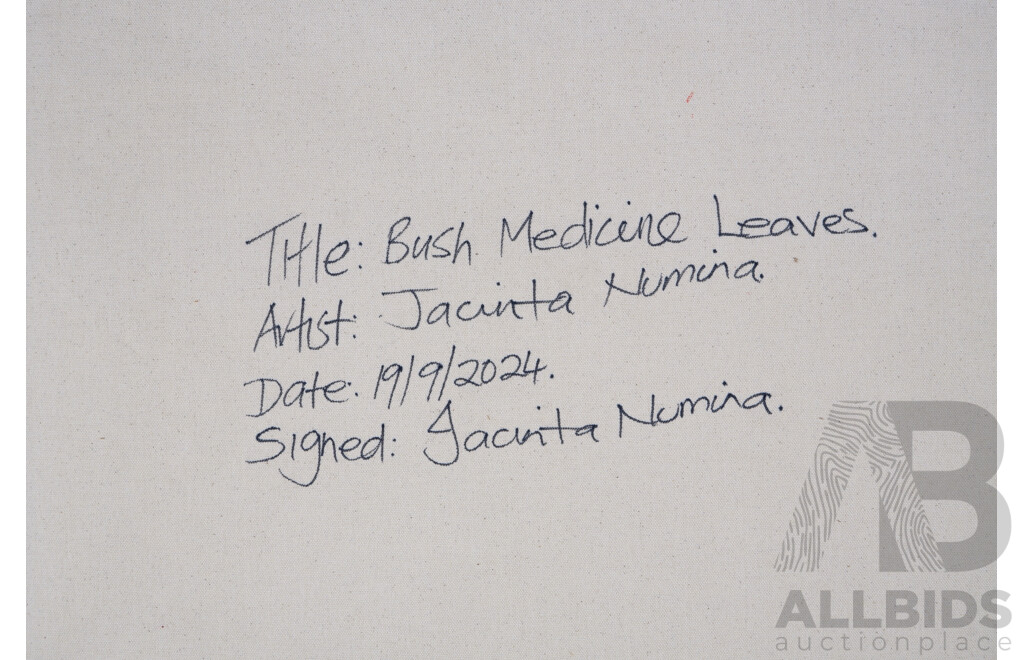 Title: Bush Medicine Leaves.
Artist: Jacinta Numina.
Date: 19/9/2024.
Signed: Jacinta Numina.
AB
ALLBIDS
auctionplace